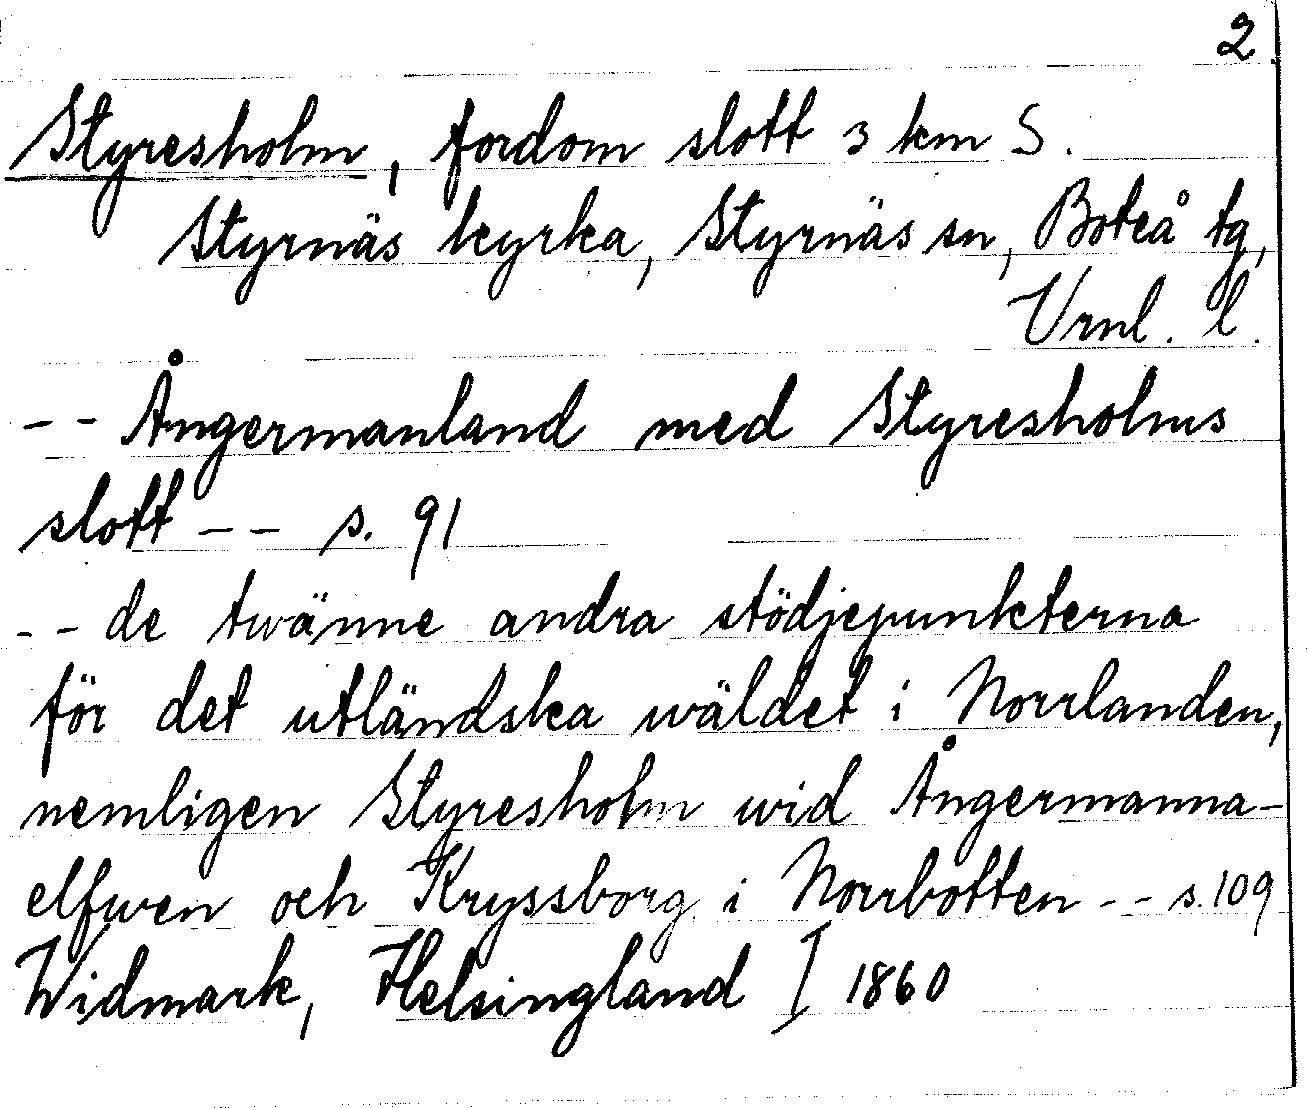 2
Styresholm, fordom slott 3 km S.
Styrnäs kyrka, Styrnäs sn, Boteå tg,
Vrnl. l.
-- Ångermanland med Styresholms
slott -- s. 91
-- de twänne andra stödjepunkterna
för det utländska wäldet i Norrlanden,
nemligen Styresholm wid Ångermanna-
elfwen och Kryssborg i Norrbotten -- s. 109
Widmark, Helsingland I 1860